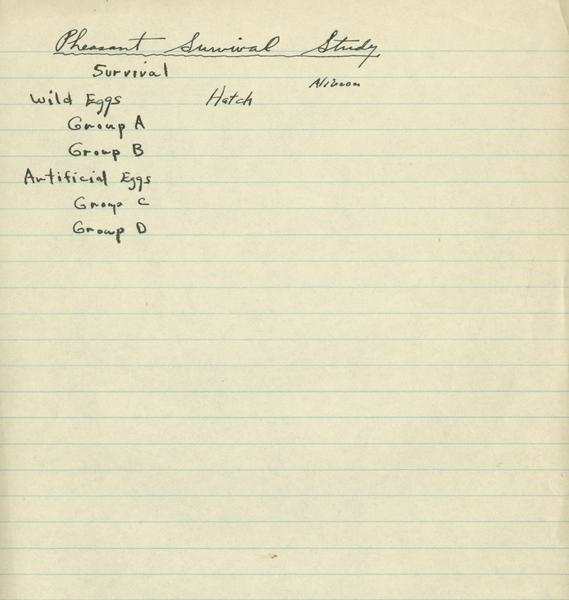 Pheasant Survival Study
Survival
Wild Eggs Hatch
Group A
Group B
Artificial Eggs
Group C
Group D